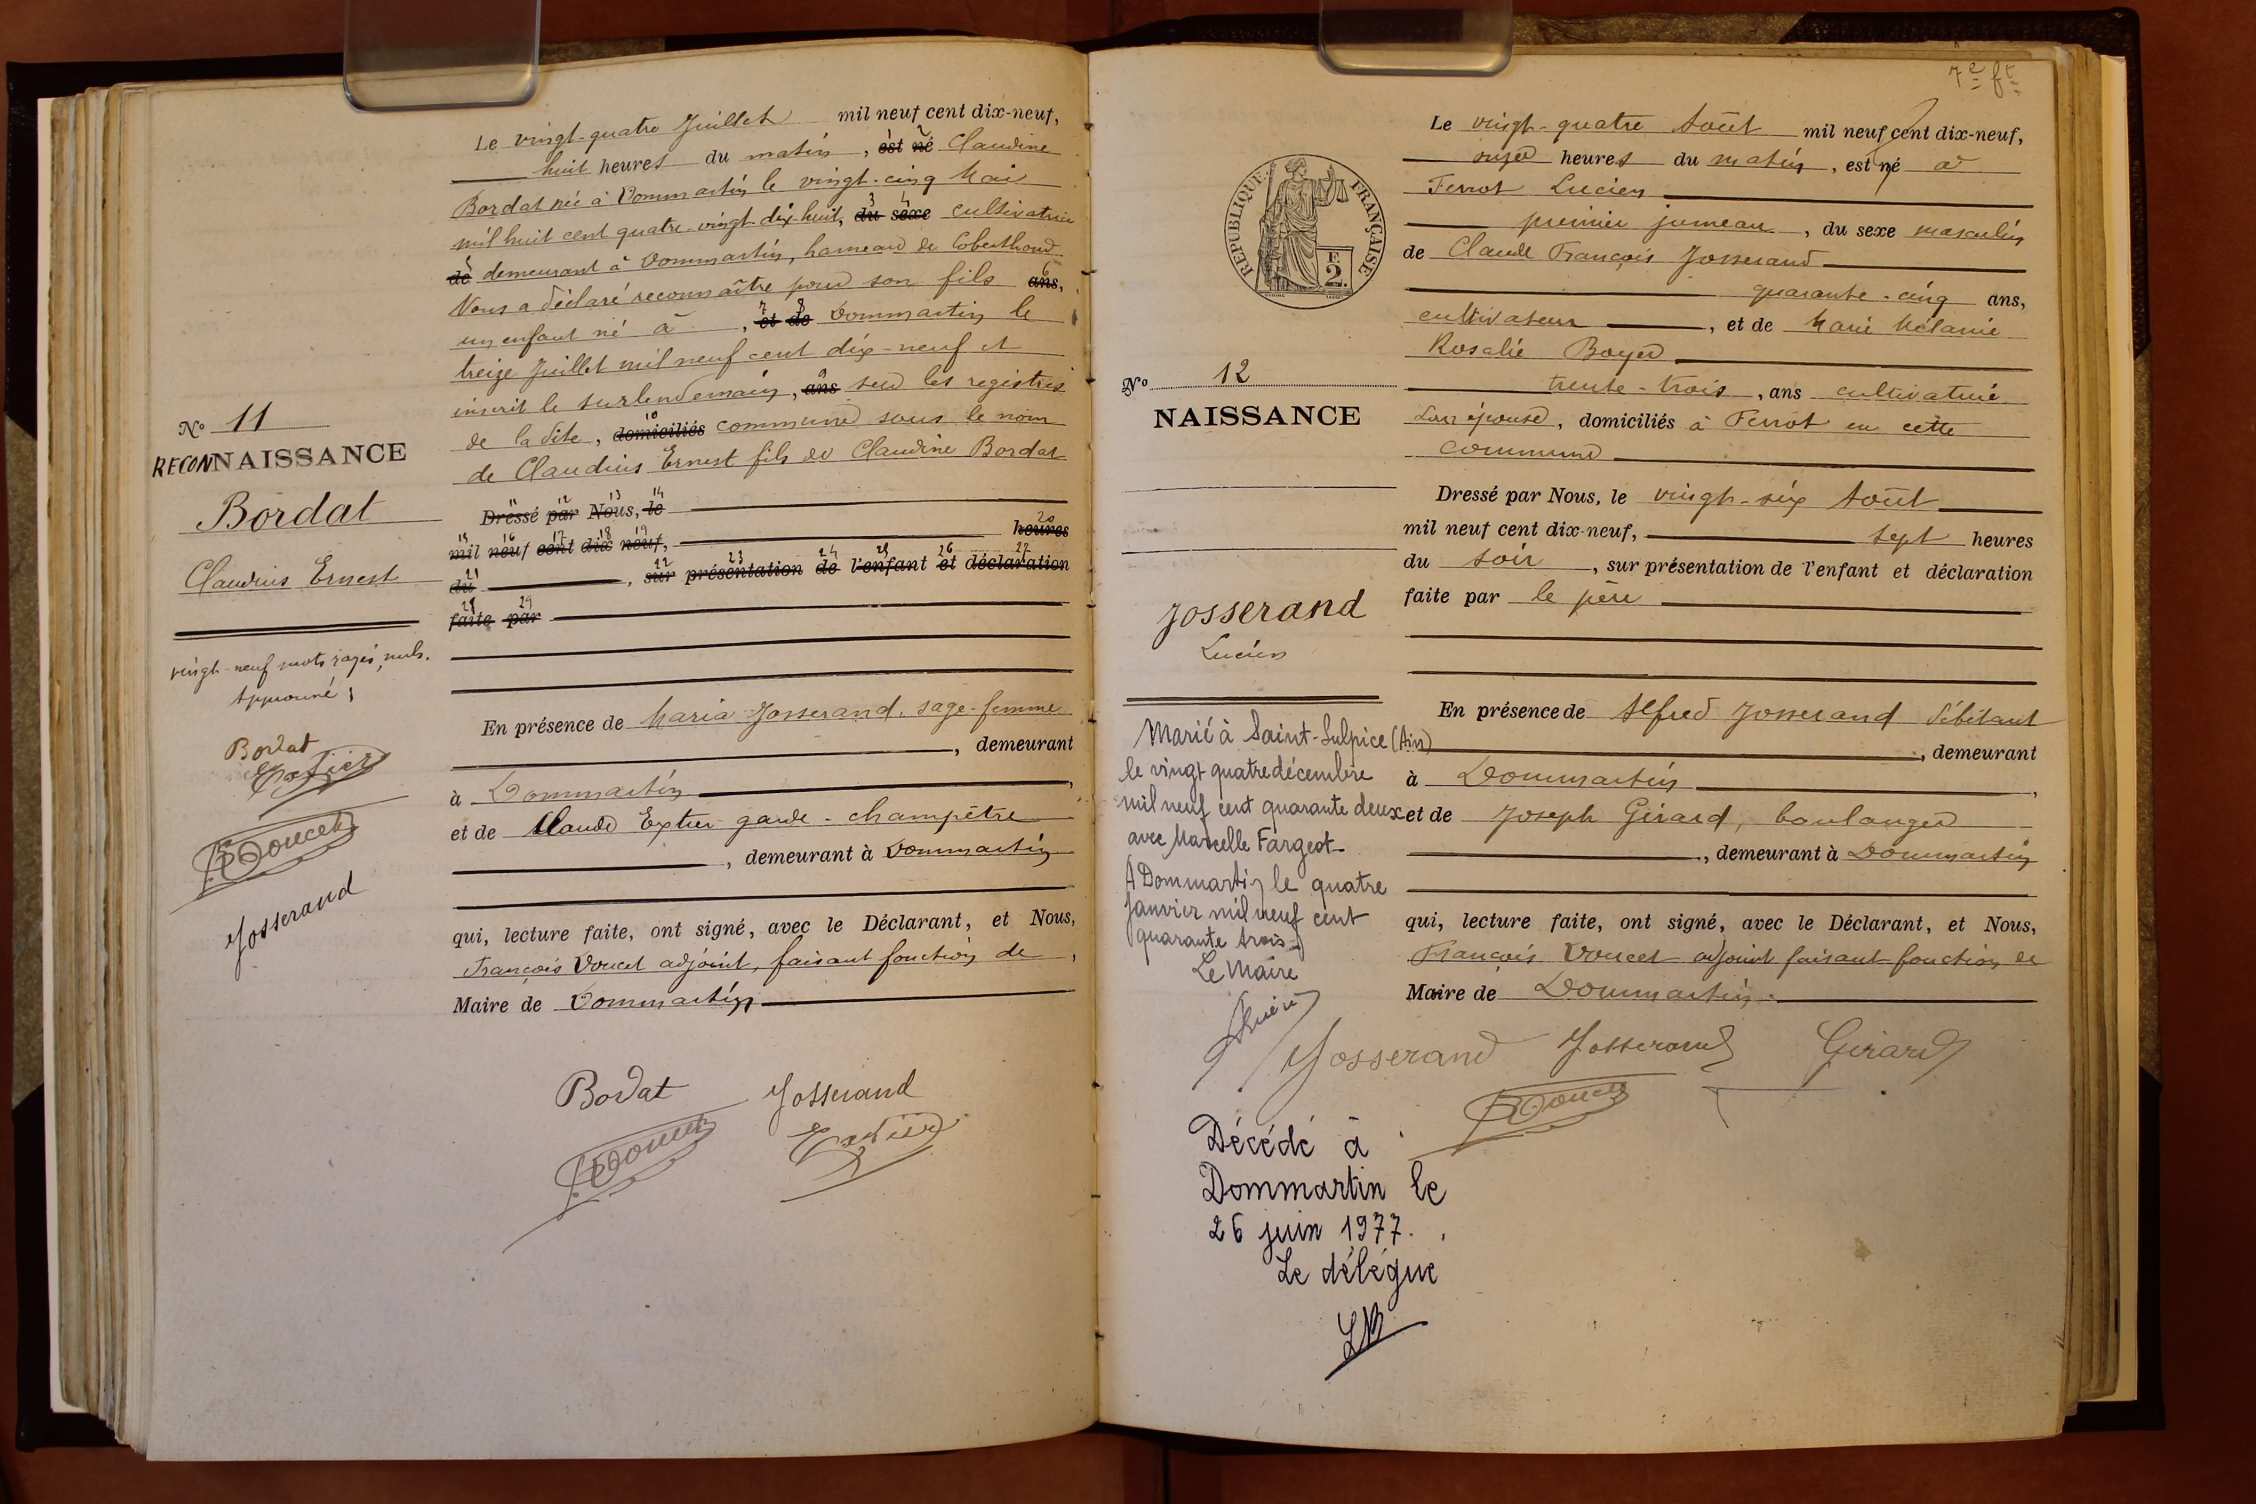 Le vingt-quatre Juillet mil neuf cent dix-neuf,
huit heures du matin, est né Claudine
Bordat née à Dommartin le vingt-cinq Mai
mil huit cent quatre-vingt dix huit, du sexe cultivatrice
de demeurant à Dommartin, hameau de Coberthoud
Nous a déclaré reconnaître pour son fils ans,
un enfant né à, et de Dommartin le
treize Juillet mil neuf cent dix-neuf et
inscrit le surlendemain, ans sur les registres
de la dite, domiciliés commune sous le nom
de Claudius Ernest fils de Claudine Bordat
Dressé par Nous, le
mil neuf cent dix neuf, heures
du, sur présentation de l'enfant et déclaration
faite par
En présence de Maria Josserand, sage-femme
, demeurant
à Dommartin,
et de Claude Extier garde-champêtre
, demeurant à Dommartin
qui, lecture faite, ont signé, avec le Déclarant, et Nous,
François Doucet adjoint, faisant fonction de,
Maire de Dommartin
Bordat Josserand
Doucet Extier
No 11
RECONNAISSANCE
Bordat
Claudius Ernest
vingt-neuf mots rayés, nuls.
Approuvé,
Bordat
Extier
Doucet
Josserand
7e ft
Le vingt-quatre Août mil neuf cent dix-neuf,
onze heures du matin, est né à
Ferrot Lucien
premier jumeau, du sexe masculin
de Claude François Josserand
quarante-cinq ans,
cultivateur, et de Marie Mélanie
Rosalie Boyer
trente-trois, ans cultivatrice
son épouse, domiciliés à Ferrot en cette
commune
Dressé par Nous, le vingt-six Août
mil neuf cent dix-neuf, sept heures
du soir, sur présentation de l'enfant et déclaration
faite par le père
En présence de Alfred Josserand débitant
, demeurant
à Dommartin,
et de Joseph Girard, boulanger
, demeurant à Dommartin
qui, lecture faite, ont signé, avec le Déclarant, et Nous,
François Doucet adjoint faisant fonction de
Maire de Dommartin.
Josserand Josserand Girard
Doucet
RÉPUBLIQUE FRANÇAISE
F.
2.
No 12
NAISSANCE
Josserand
Lucien
Marié à Saint-Sulpice (Ain)
le vingt quatre décembre
mil neuf cent quarante deux
avec Marcelle Fargeot
A Dommartin le quatre
janvier mil neuf cent
quarante trois
Le Maire
Décédé à
Dommartin le
26 juin 1977.
Le délégué